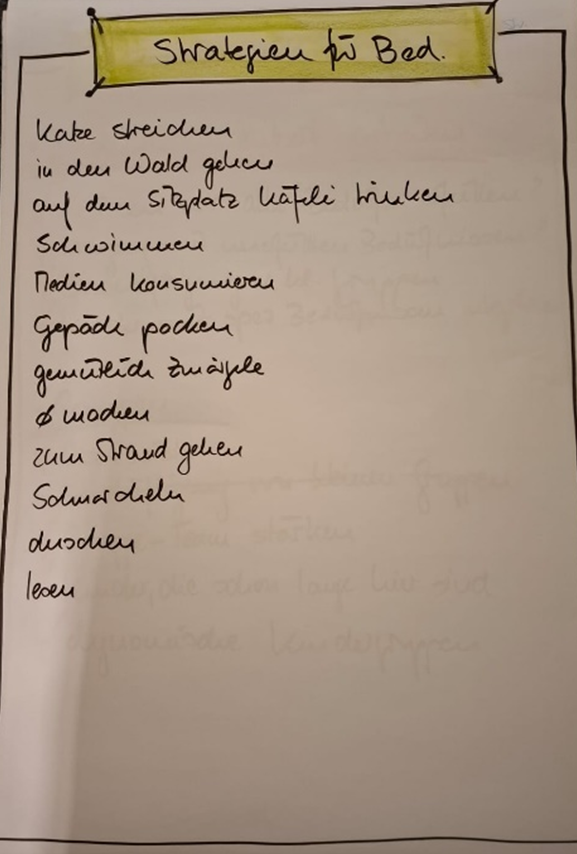 Strategien für Bed.
Katze streichen
in den Wald gehen
auf dem Sitzplatz Käfeli trinken
Schwimmen
Medien konsumieren
Gepäck packen
gemütlich Zmörgele
Ø machen
zum Strand gehen
Schnorcheln
duschen
lesen